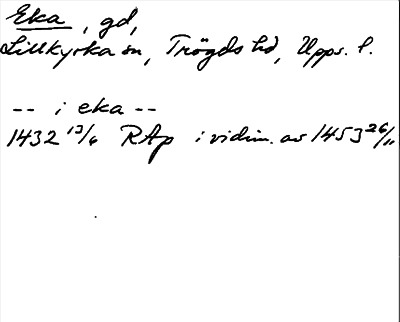 Eka, gd,
Lillkyrka sn, Trögds hd, Upps. l.
-- i eka --
1432 13/6 RAp i vidim. av 1453 26/11